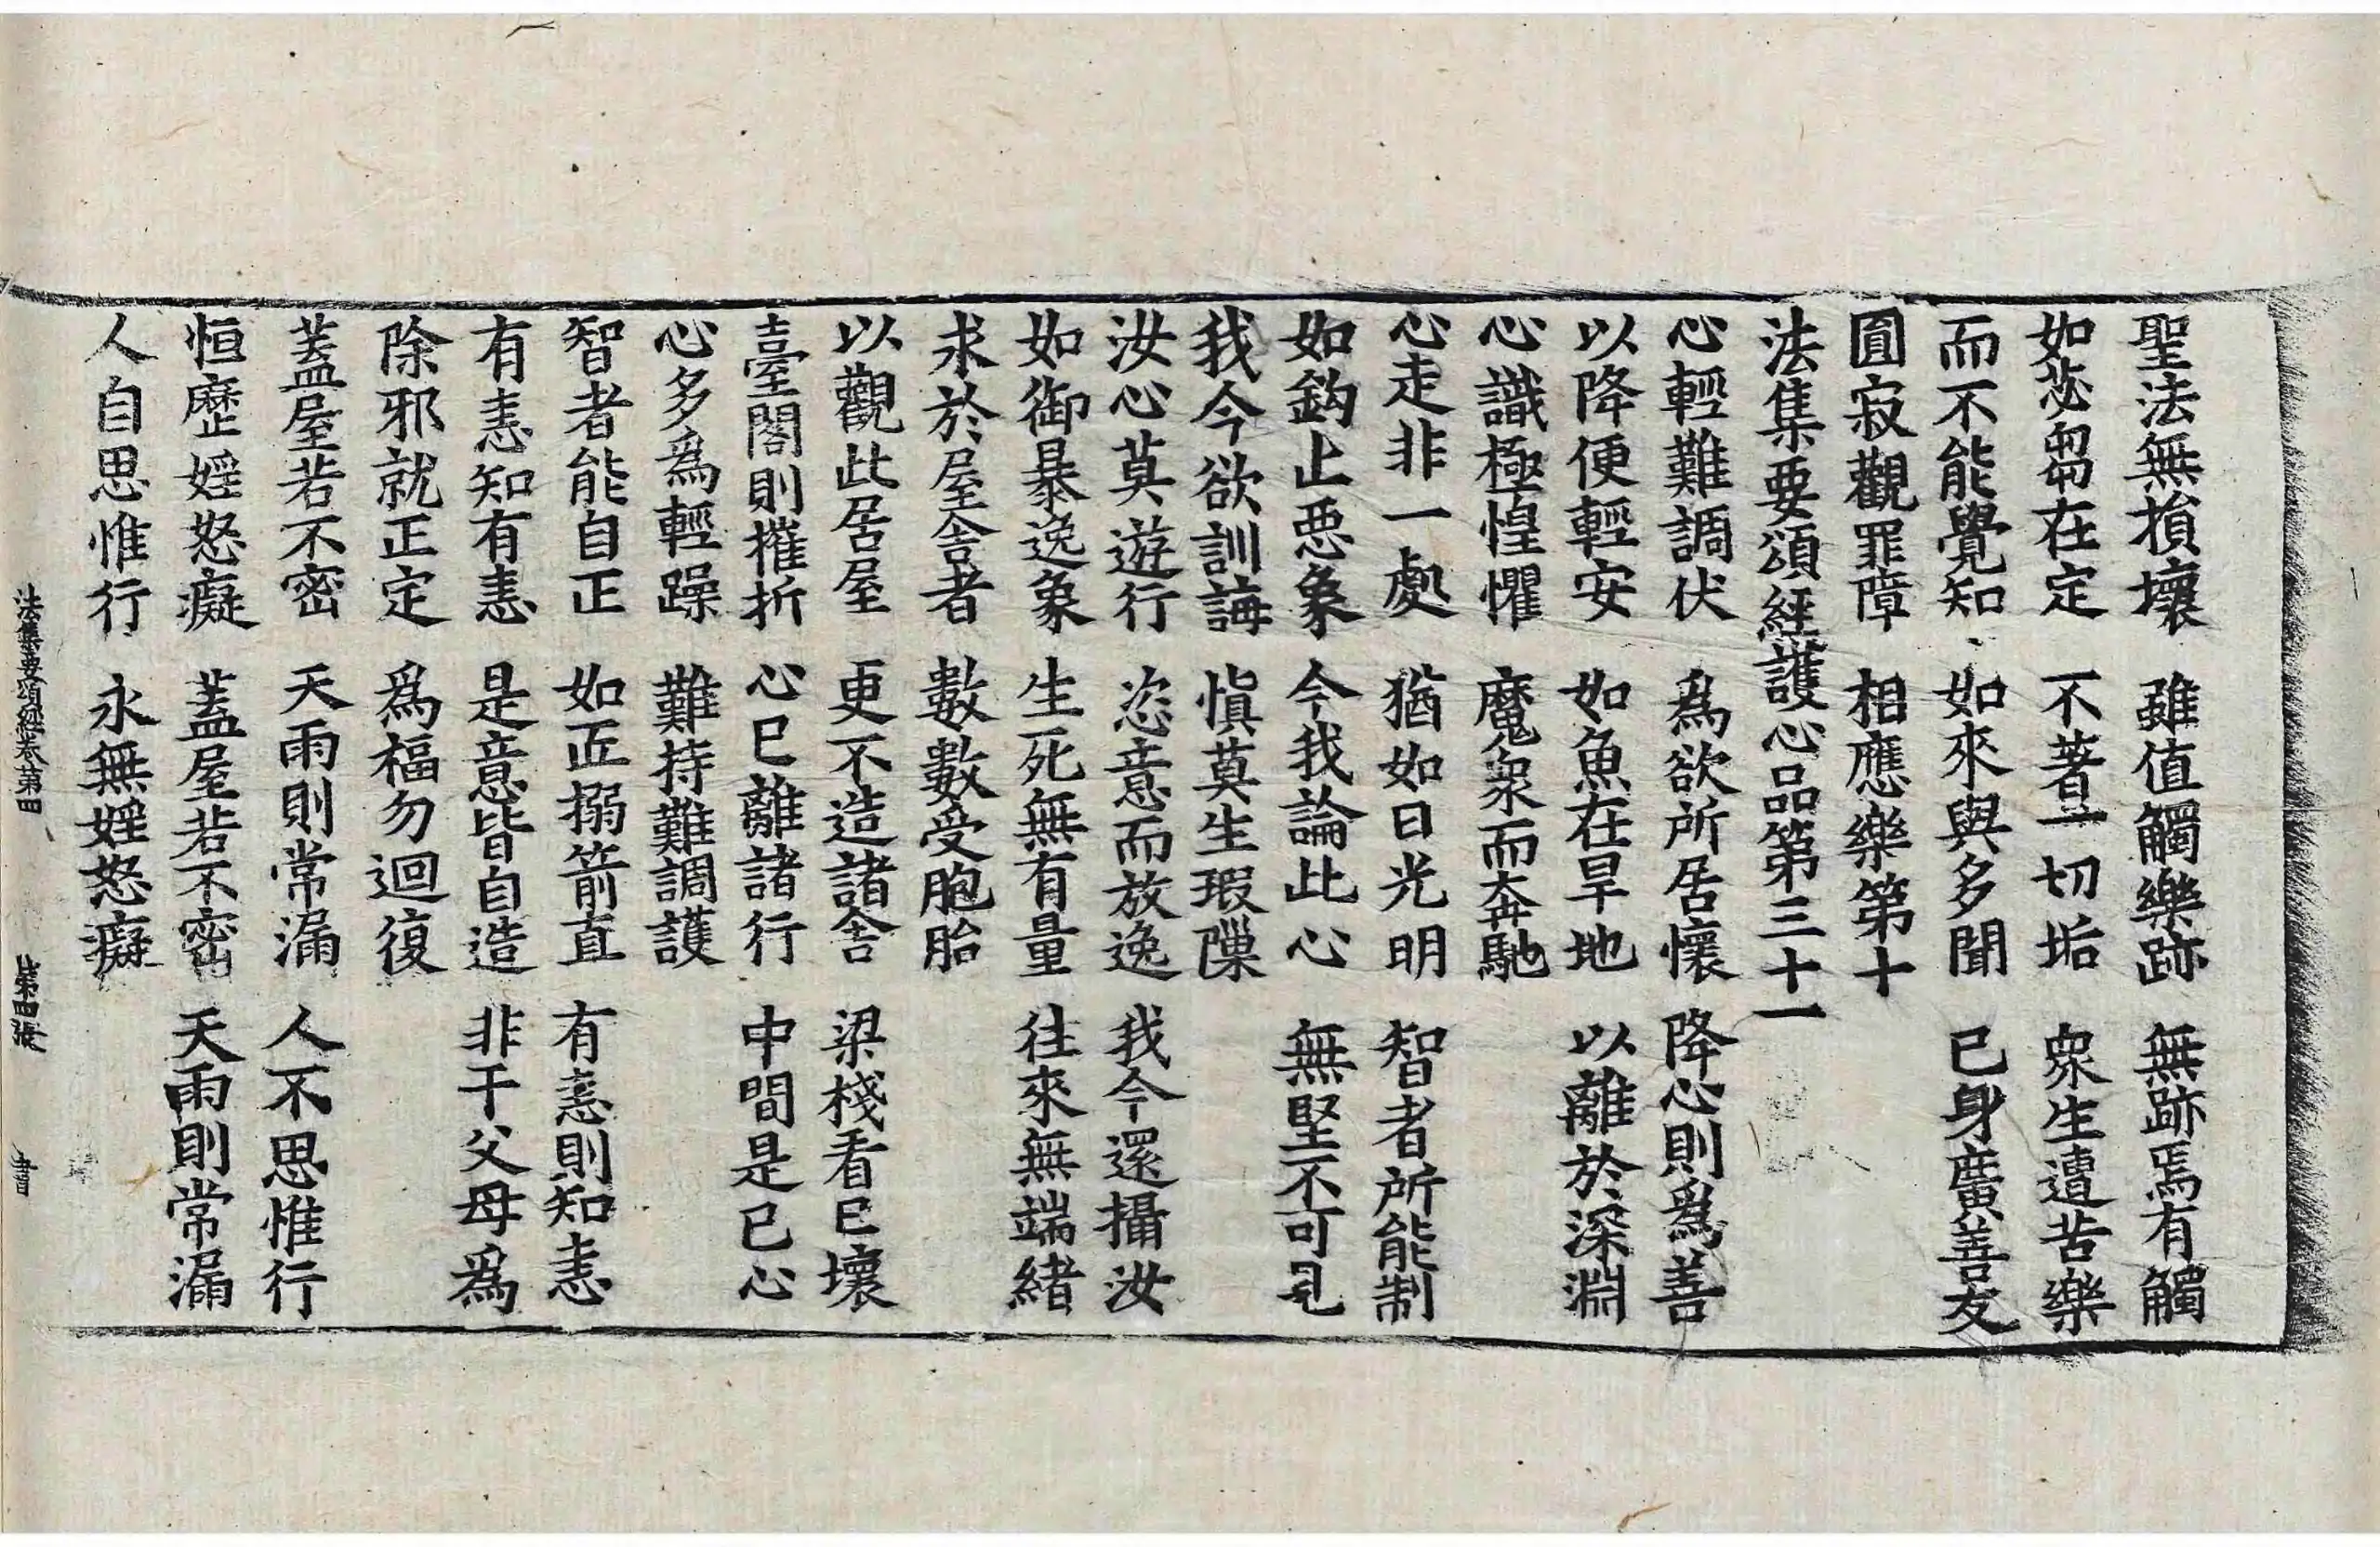 聖法無損壞　雖值觸樂跡　無跡焉有觸
如苾芻在定　不著一切垢　衆生遭苦樂
而不能覺知　如來與多聞　已身廣善友
圓寂觀罪障　相應樂第十
法集要頌經護心品第三十一
心輕難調伏　爲欲所居懷　降心則爲善
以降便輕安　如魚在旱地　以離於深淵
心識極惶懼　魔衆而奔馳
心走非一處　猶如日光明　智者所能制
如鉤止惡象　今我論此心　無堅不可見
我今欲訓誨　慎莫生瑕隟
汝心莫遊行　恣意而放逸　我今還攝汝
如御暴逸象　生死無有量　往來無端緒
求於屋舍者　數數受胞胎
以觀此居屋　更不造諸舍　梁棧看已壞
臺閣則摧折　心已離諸行　中間是已心
心多爲輕躁　難持難調護
智者能自正　如匠搦箭直　有恚則知恚
有恚知有恚　是意皆自造　非干父母爲
除邪就正定　爲福勿迴復
蓋屋若不密　天雨則常漏　人不思惟行
恒歷婬怒癡　蓋屋若不密　天雨則常漏
人自思惟行　永無婬怒癡
法集要頌經卷第四　第四張